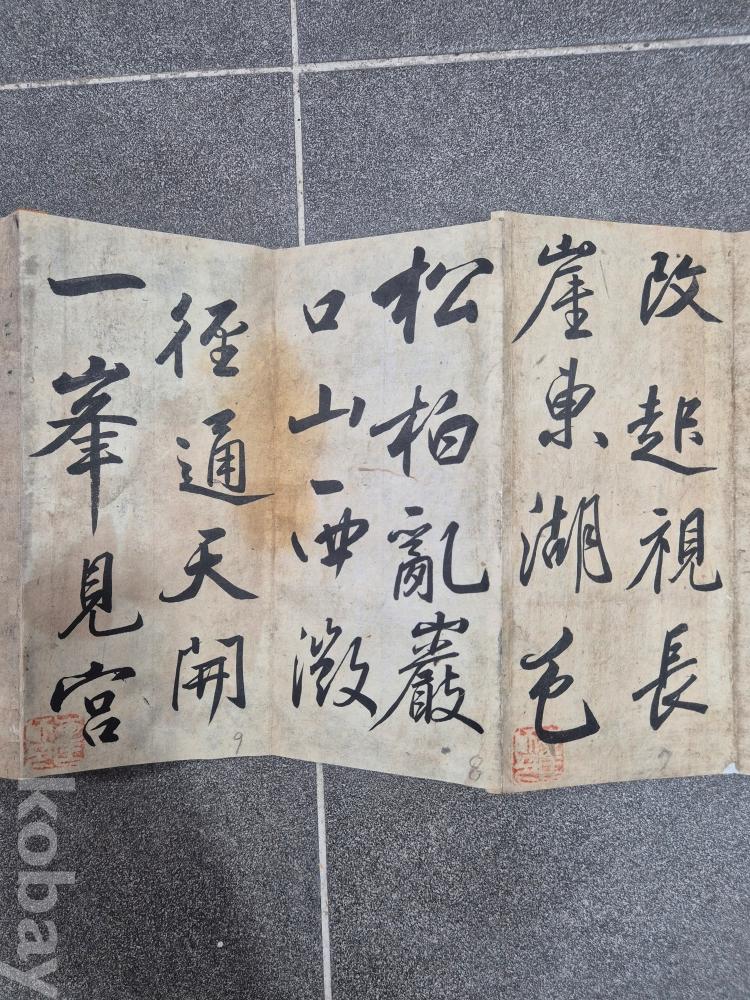 改起視長
崖東湖色
松柏亂巖
口山西微
徑通天開
一峯見宮
7
8
9
kobay